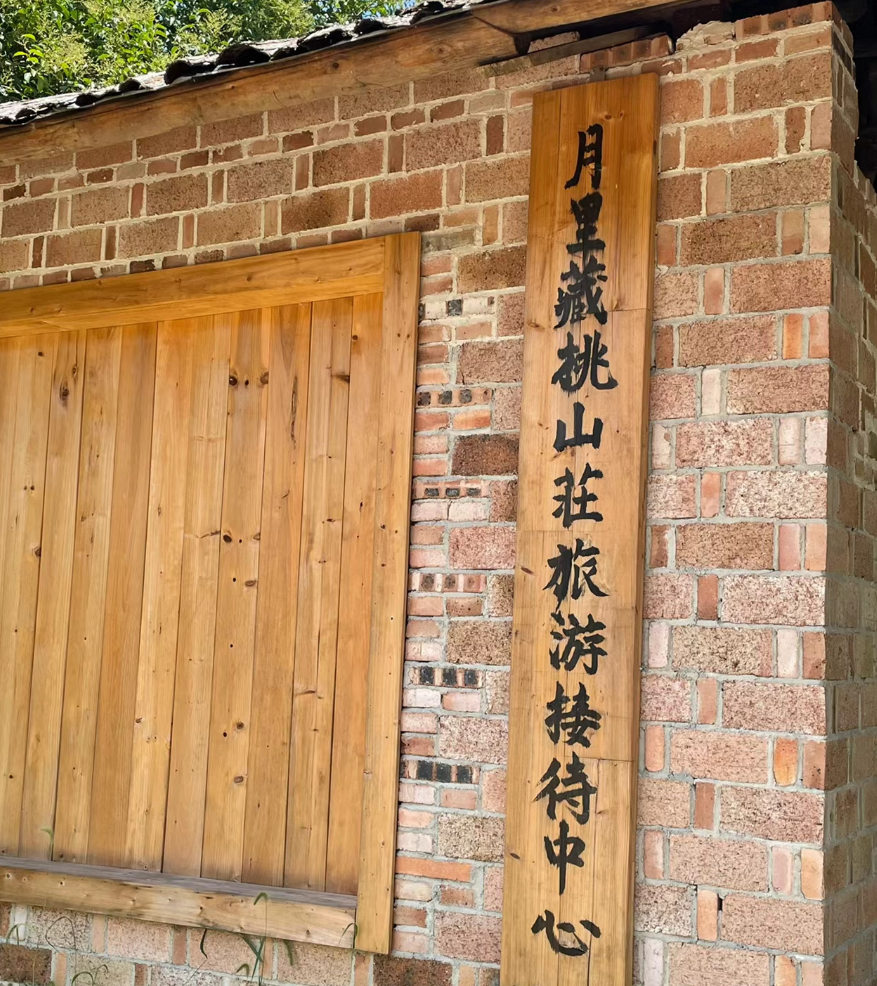 月里藏桃山莊旅游接待中心